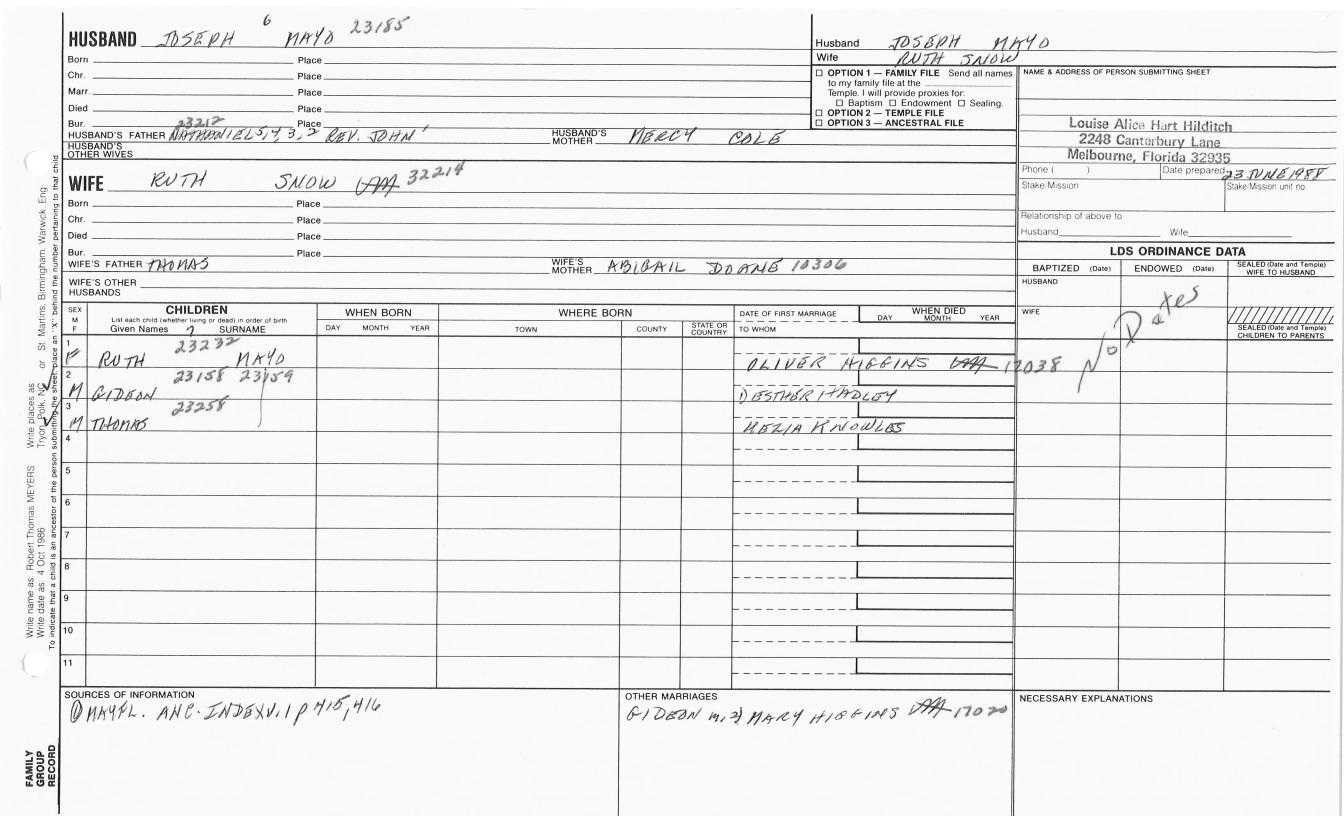 HUSBAND JOSEPH 6 MAYO 23185
Born Place
Chr. Place
Marr. Place
Died Place
Bur. Place
23212
HUSBAND'S FATHER NATHANIEL 5, 4, 3, 2 REV. JOHN 1 HUSBAND'S MOTHER MERCY COLE
HUSBAND'S OTHER WIVES
WIFE RUTH SNOW 32214
Born Place
Chr. Place
Died Place
Bur. Place
WIFE'S FATHER THOMAS WIFE'S MOTHER ABIGAIL DOANE 10306
WIFE'S OTHER HUSBANDS
Husband JOSEPH MAYO
Wife RUTH SNOW
☐ OPTION 1 — FAMILY FILE Send all names
to my family file at the
Temple. I will provide proxies for:
☐ Baptism ☐ Endowment ☐ Sealing.
☐ OPTION 2 — TEMPLE FILE
☐ OPTION 3 — ANCESTRAL FILE
NAME & ADDRESS OF PERSON SUBMITTING SHEET
Louise Alice Hart Hilditch
2248 Canterbury Lane
Melbourne, Florida 32935
Phone ( ) Date prepared 23 JUNE 1988
Stake/Mission Stake/Mission unit no
Relationship of above to
Husband Wife
LDS ORDINANCE DATA
BAPTIZED (Date) ENDOWED (Date) SEALED (Date and Temple) WIFE TO HUSBAND
HUSBAND
WIFE
SEALED (Date and Temple) CHILDREN TO PARENTS
No Dates
SEX M F
CHILDREN
List each child (whether living or dead) in order of birth
Given Names 7 SURNAME
WHEN BORN
DAY MONTH YEAR
WHERE BORN
TOWN COUNTY STATE OR COUNTRY
DATE OF FIRST MARRIAGE
TO WHOM
WHEN DIED
DAY MONTH YEAR
1 23232
F RUTH MAYO OLIVER HIGGINS 17038
2 23158 23159
M GIDEON ESTHER HADLEY
3 23258
M THOMAS KNOWLES
4
5
6
7
8
9
10
11
SOURCES OF INFORMATION
① MAYFL. ANC. INDEX V. 1 p 415, 416
OTHER MARRIAGES
GIDEON m. 2) MARY HIGGINS 17020
NECESSARY EXPLANATIONS
Write name as: Robert Thomas MEYERS Write places as
Write date as: 4 Oct 1986 Tryon, Polk, NC or St. Martins, Birmingham, Warwick, Eng.
To indicate that a child is an ancestor of the person submitting the sheet, place an "X" behind the number pertaining to that child
FAMILY GROUP RECORD